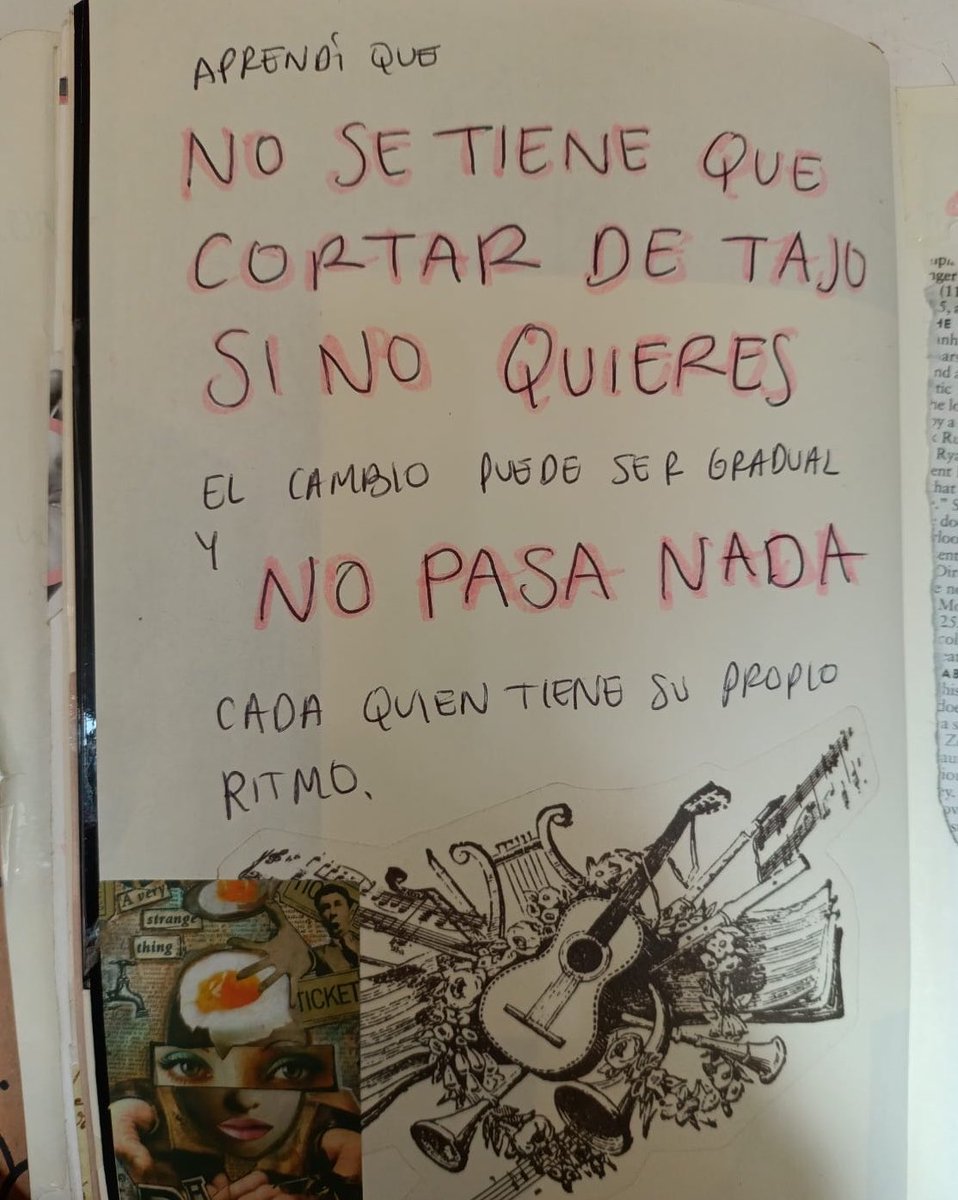 APRENDÍ QUE
NO SE TIENE QUE
CORTAR DE TAJO
SI NO QUIERES
EL CAMBIO PUEDE SER GRADUAL
Y
NO PASA NADA
CADA QUIEN TIENE SU PROPIO
RITMO.
A very
strange
thing
TICKET